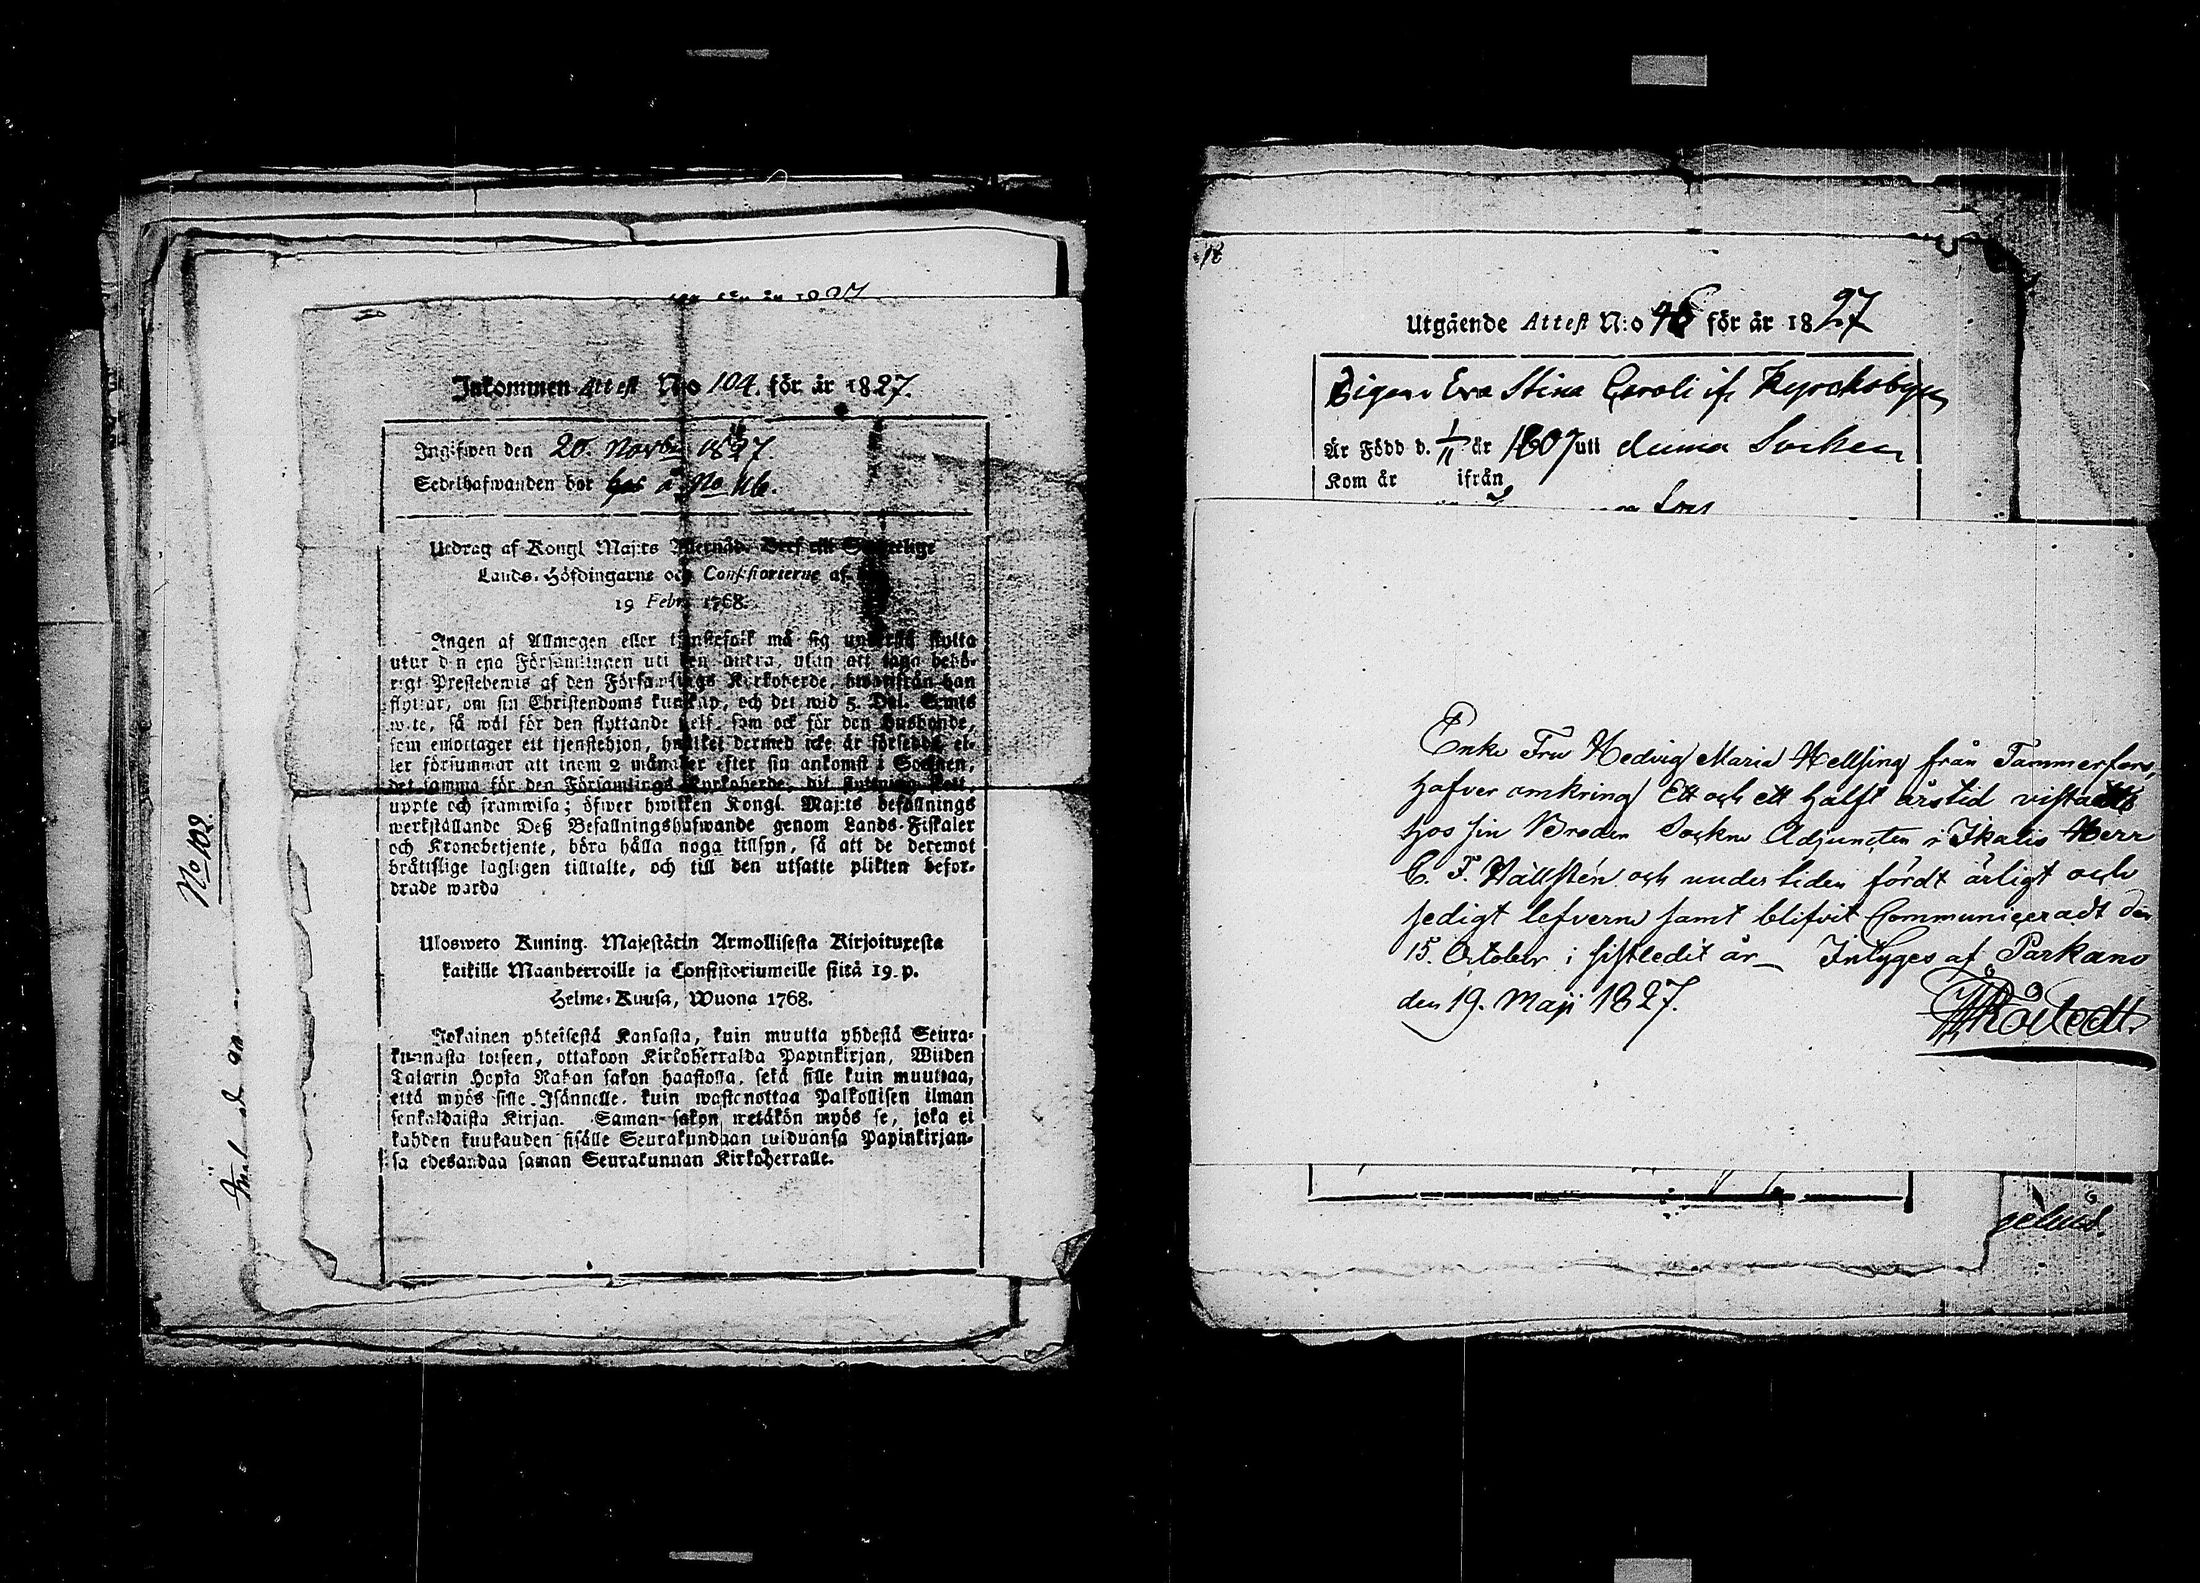 No 102.
Inkommen Attest N:o 104. för år 1827.
Ingifwen den 20. Novbr 1827.
Sedelhafwanden bor hos å No
Utdrag af Kongl Maj:ts Allernåd. Bref till Samtelige
Lands-Höfdingarne och Consistorierne af
19 Febr. 1768.
Ingen af Allmogen eller tjenstefolk må sig understå flytta
utur den ena Församlingen uti den andra, utan att taga behö-
rigt Prestebewis af den Församlings Kirkoherde, hwarifrån han
flyttar, om sin Christendoms kunskap, och det wid 5. Dal. S:mts
wite, så wäl för den flyttande self, som ock för den Husbonde,
som emottager ett tjenstehjon, hwilket dermed icke är försedt, el-
ler försummar att inom 2 månader efter sin ankomst i Socknen,
det samma för den Församlings Kyrkoherde, dit flyttning skett,
uppte och framwisa; öfwer hwilken Kongl. Maj:ts befallnings
werkställande Deß Befallningshafwande genom Lands-Fiskaler
och Kronobetjente, böra hålla noga tillsyn, så att de deremot
bråttslige lagligen tilltalte, och till den utsatte plikten befor-
drade warda
Ulosweto Kuning. Majestätin Armollisesta Kirjoituxesta
kaikille Maanherroille ja Consistoriumeille siitä 19. p.
Helme-Kuusa, Wuona 1768.
Jokainen yhteisestä Kansasta, kuin muutta yhdestä Seura-
kunnasta toiseen, ottakoon Kirkoherralda Papinkirjan, Wiiden
Talarin Hopia Rahan sakon haastolla, sekä sille kuin muuttaa,
että myös sille Isännelle, kuin wastanottaa Palkollisen ilman
senkaldaista Kirjan. Saman sakon wetäkön myös se, joka ei
kahden kuukauden sisälle Seurakundaan tulduansa Papinkirjan-
sa edesandaa saman Seurakunnan Kirkoherralle.
Utgående Attest N:o 46 för år 1827
Pigan Eva Stina Caroli ifr Kyrckobyen
Är Född d. 1/11 år 1807 uti denna Socken
Kom år ifrån
Enke Fru Hedvig Maria Hellsing från Tammerfors,
hafver omkring Ett och ett halft årstid vistats
hos sin Broder Sockne Adjuncten i Ikalis Herr
C. F. Hällstén och under tiden fördt ärligt och
sedigt lefverne samt blifvit Communiceradt den
15. October i sistledit år _ Intyges af Parkano
den 19. Maji 1827.